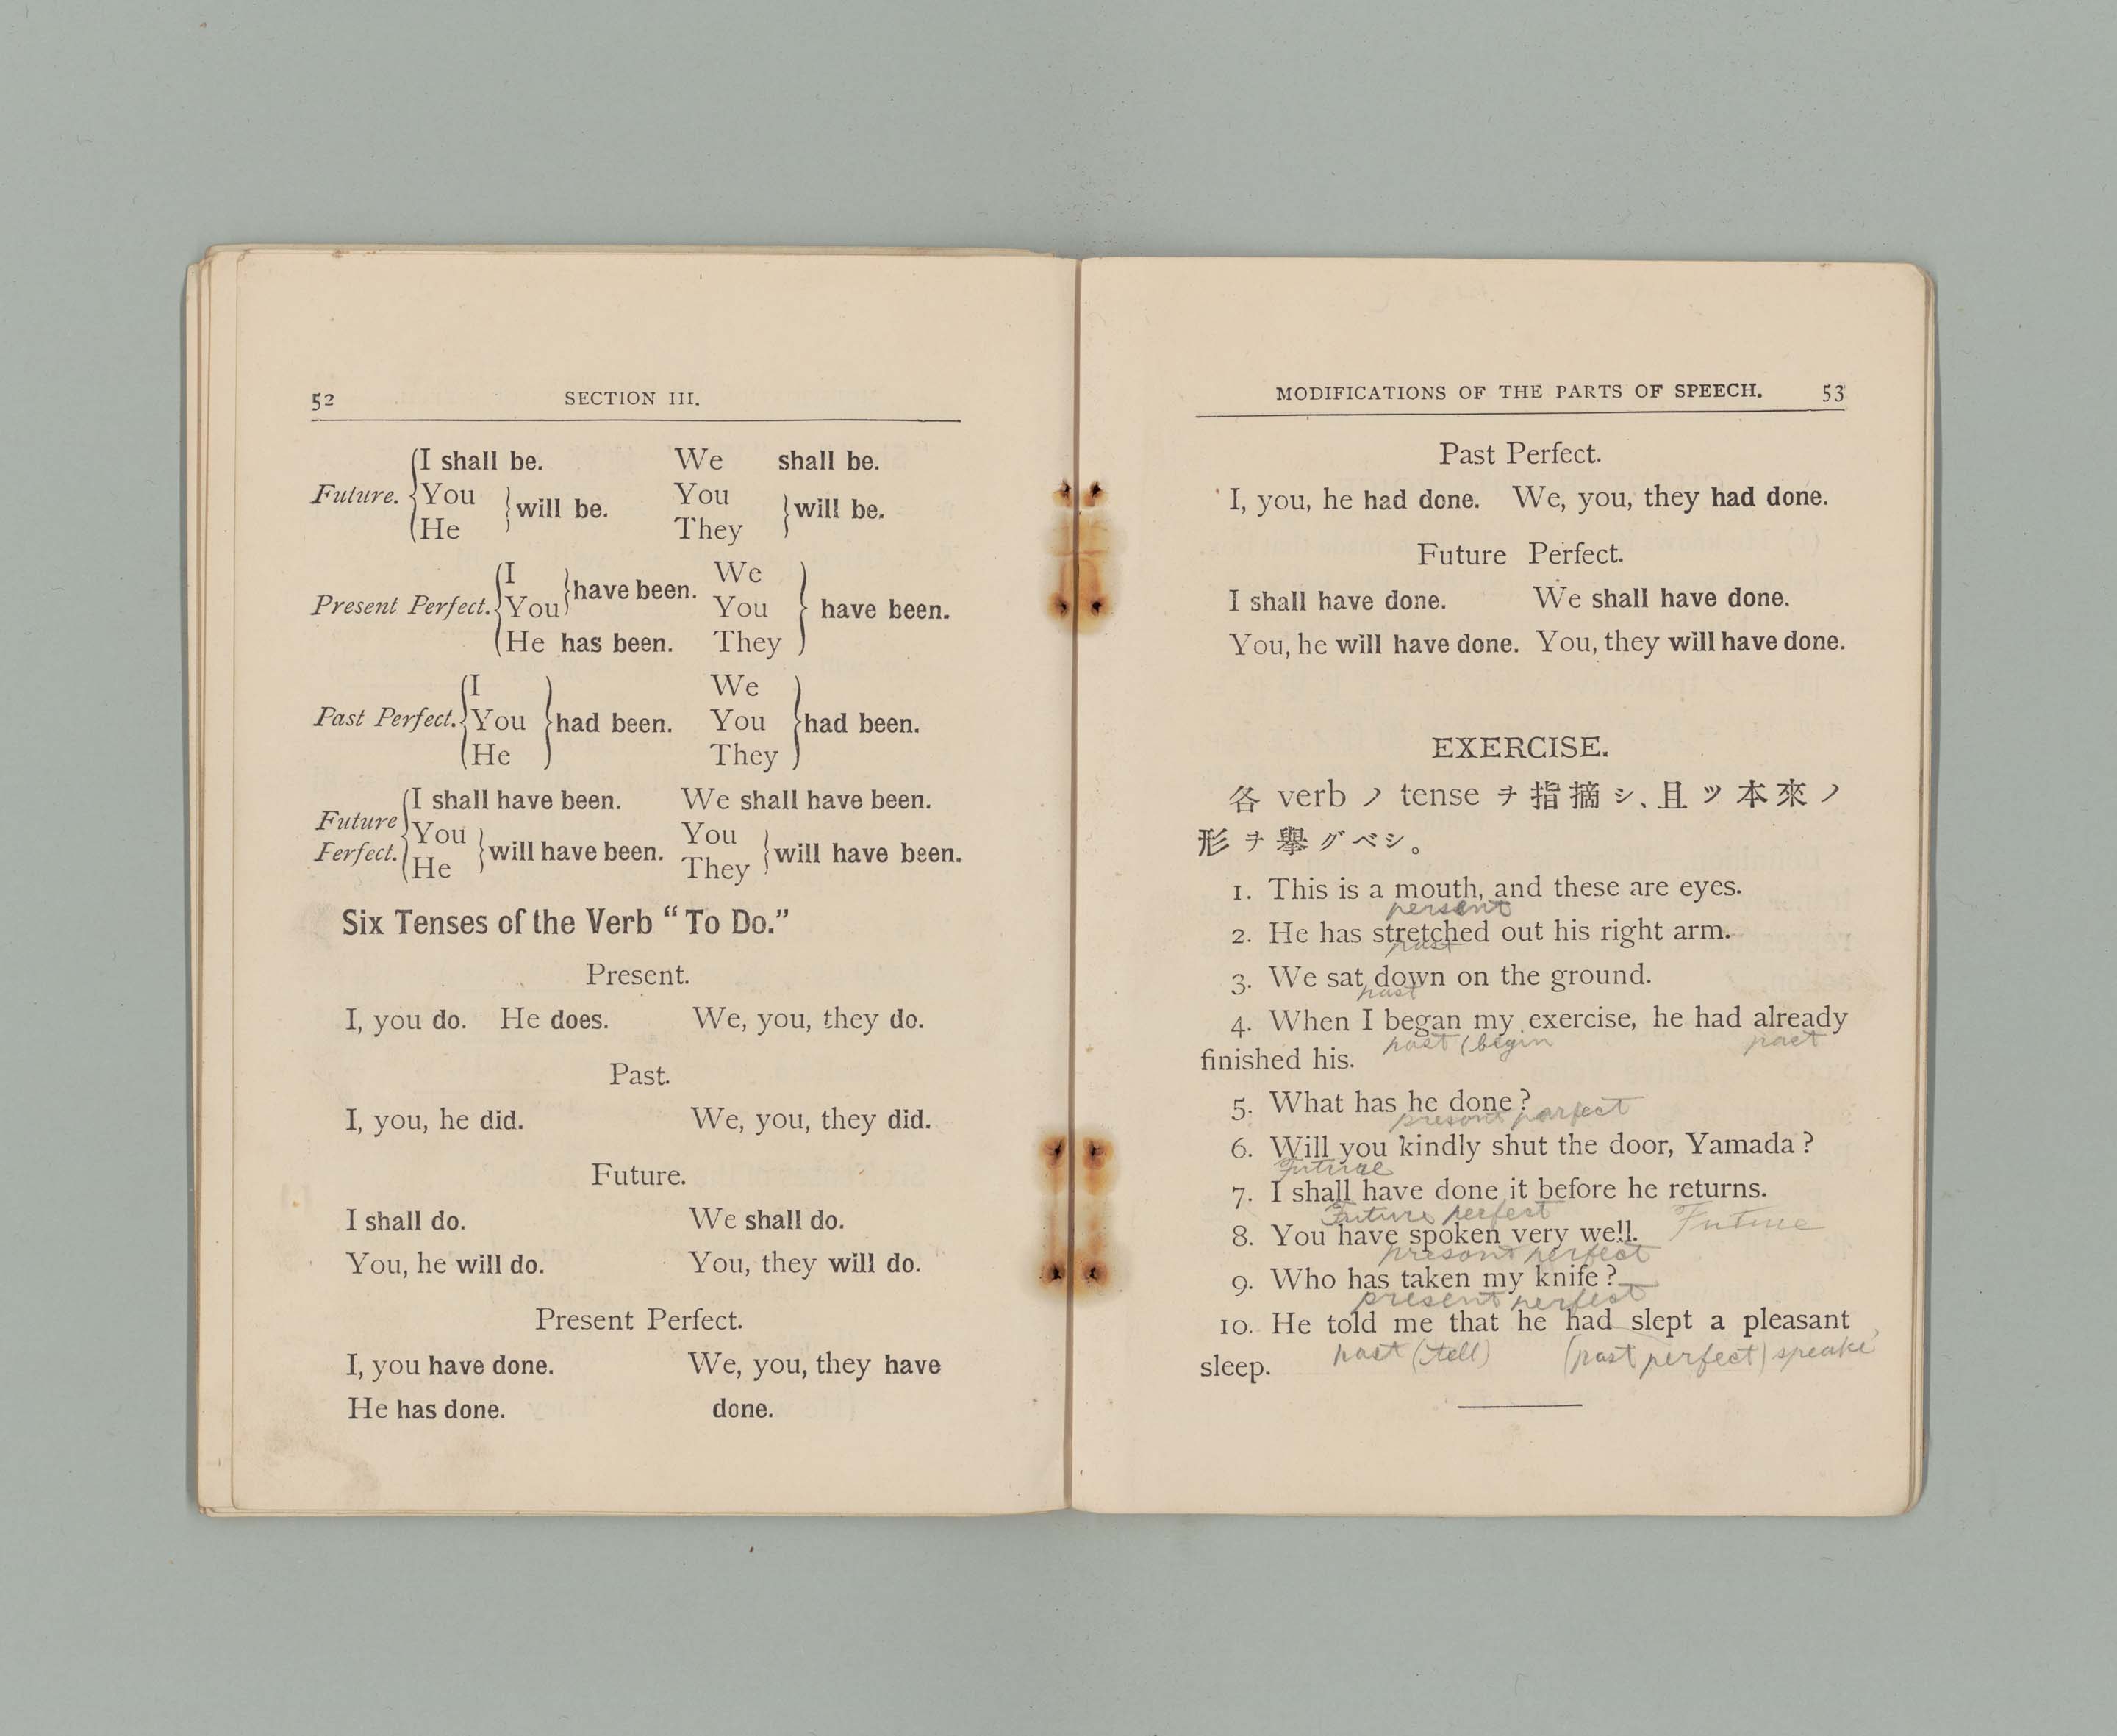 52 SECTION III.
Future. I shall be. We shall be.
You You
He will be. They will be.
Present Perfect. I We
You have been. You have been.
He has been. They
Past Perfect. I We
You had been. You had been.
He They
Future Ferfect. I shall have been. We shall have been.
You You
He will have been. They will have been.
Six Tenses of the Verb “To Do.”
Present.
I, you do. He does. We, you, they do.
Past.
I, you, he did. We, you, they did.
Future.
I shall do. We shall do.
You, he will do. You, they will do.
Present Perfect.
I, you have done. We, you, they have
He has done. done.
MODIFICATIONS OF THE PARTS OF SPEECH. 53
Past Perfect.
I, you, he had done. We, you, they had done.
Future Perfect.
I shall have done. We shall have done.
You, he will have done. You, they will have done.
EXERCISE.
各 verb ノ tense ヲ 指摘シ、且ツ本來ノ
形ヲ擧グベシ。
1. This is a mouth, and these are eyes.
persent
2. He has stretched out his right arm.
past
3. We sat down on the ground.
past
4. When I began my exercise, he had already
past (begin past
finished his.
5. What has he done?
present parfect
6. Will you kindly shut the door, Yamada?
Future
7. I shall have done it before he returns.
Future perfect Future
8. You have spoken very well.
present perfect
9. Who has taken my knife?
present perfect
10. He told me that he had slept a pleasant
past (tell) (past perfect) speake
sleep.